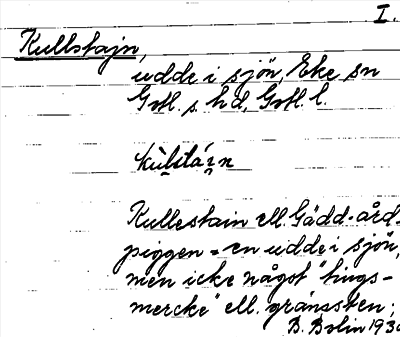 I.
Kullstajn,
udde i sjön, Eke sn
Gotl. s. hd, Gotl. l.
kùlstá̀i̯n
Kullestain ell. Gädd-ård-
piggen = en udde i sjön,
men icke något "tings-
mercke" ell. gränssten;
B. Bolin 1930